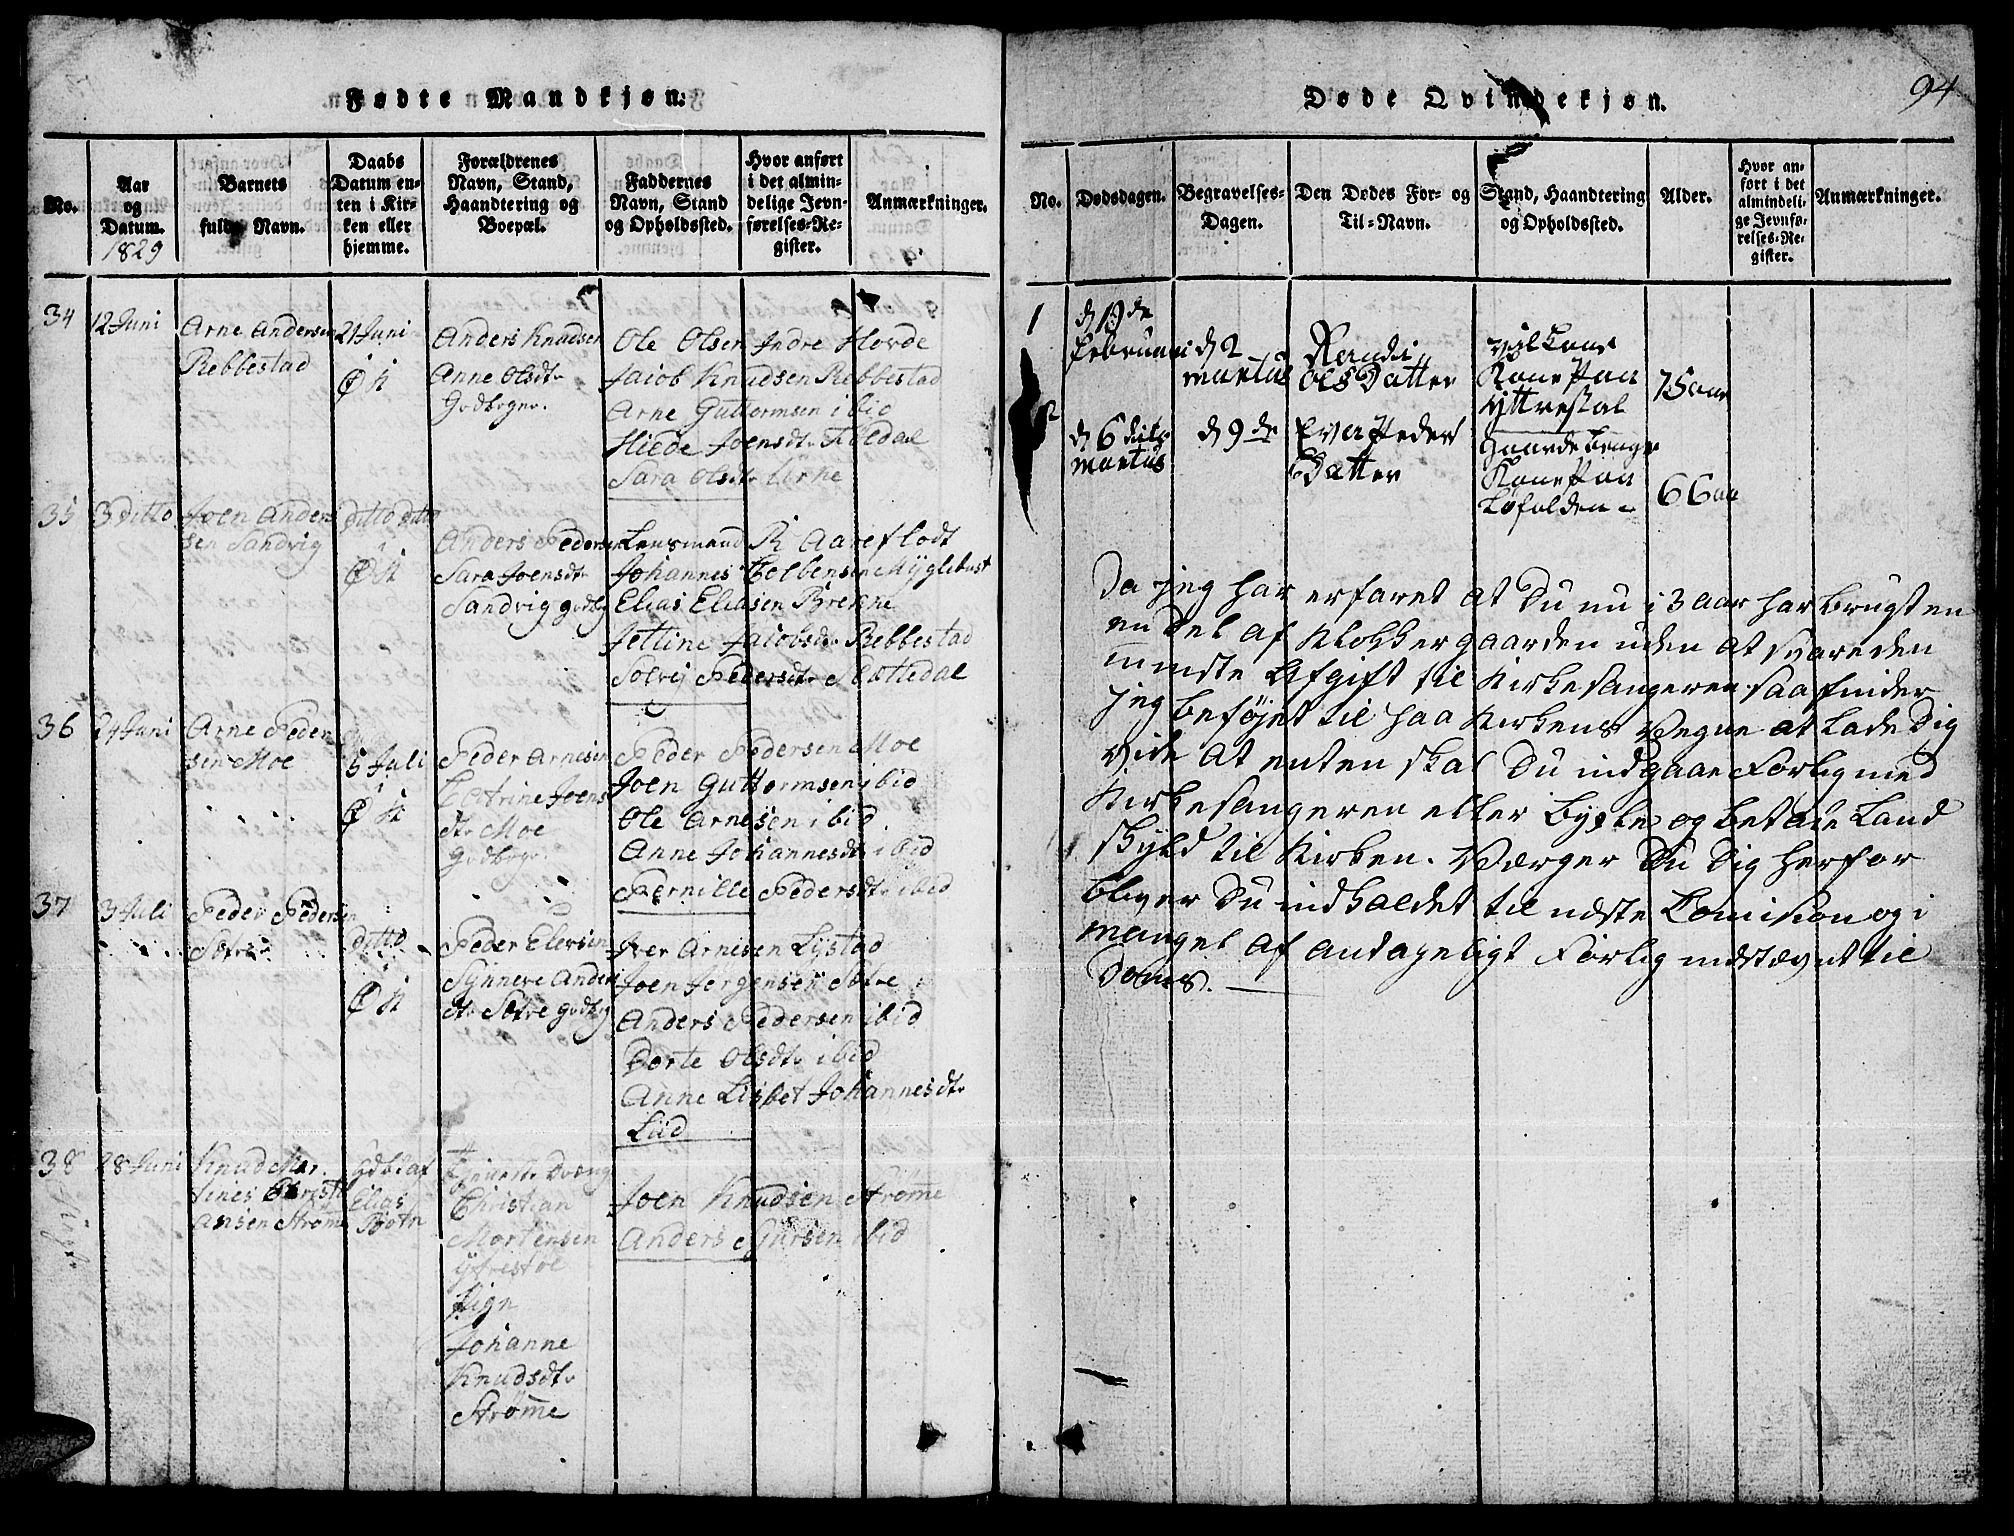 Fødte Mandkjøn.
No.
Aar og Datum.
1829
Barnets fulde Navn.
Daabs Datum enten i Kirken eller hjemme.
Forældrenes Navn, Stand, Haandtering og Boepæl.
Faddernes Navn, Stand og Opholdssted.
Hvor anført i det almindelige Jevnførelses-Register.
Anmærkninger.
34
12 Juni
Arne Andersen
Rebbestad
21 Juni
i
Ø K
Anders Knudsen
Anne Olsdtr
Ole Olsen Indre Hovde
Jaiob Knudsen Rebbestad
Arne Guttormsen ibid
Hlede Joensdtr
Sara Olsdtr Urke
35
3 Ditto
Joen Ander
sen Sandvig
Ditto Ditto
i
Ø K
Anders Pedersen
Sara Joensdtr
Sandvig
Lensmand R Aareflodt
Johannes Colbensen Myglebust
Elias Eliasen Brekne
Jettine Jacobsdtr Rebbestad
Solvij Pedersdtr
36
24 Juni
Arne Peder
sen Moe
5 Juli
i
Ø K
Peder Arnesen
Catrine Joens
dtr Moe
Peder Pedersen Moe
Joen Guttormsen ibid
Ole Arnesen ibid
Anne Johannesdtr ibid
Pernille Pedersdtr ibid
37
3 Juli
Peder Pedersen
Sætre
Ditto
i
Ø K
Peder Elersen
Synneve Anders
dtr Sætre
Iver Arnesen Lystad
Joen Jørgensen Sætre
Anders Pedersen ibid
Dorte Olsdtr ibid
Anne Lisbet Johannesdtr
Liid
38
28 Juni
Knud Mar
tines Christi
ansen Strøme
Elias
Botn
Christian
Mortensen
Yttrestøl
Pign
Johanne
Knudsdtr
Strømme
Joen Knudsen Strøme
Anders ibid
94
Døde Qvindekjøn.
No.
Dødsdagen.
Begravelses-Dagen.
Den Dødes For- og Til-Navn.
Stand, Haandtering og Opholdssted.
Alder.
Hvor anført i det almindelige Jevnførelses-Register.
Anmærkninger.
1
d 19 de
Februari
d 2
martus
Randi
Ols Datter
Kone Paa
Yttrestøl
75 aar
2
d 6
martus
d 9 de
Eva Peders
Datter
Gaardebruger
Kone Paa
66 aa
Da jeg har erfaret at Du nu i 3 aar har brugt en
en Del af Klokkergaarden uden at svare den
minste Afgift til Kirkesangeren saa finder
jeg beføjet til paa Kirkens Vegne at lade Dig
vide at enten skal Du indgaae Forlig med
Kirkesangeren eller bygle og betale Land
skyld til Kirken. Værger Du Dig herfor
bliver Du indkaldet til næste Comision og i
mangel af antageligt Forlig indstævnet til
Doms.